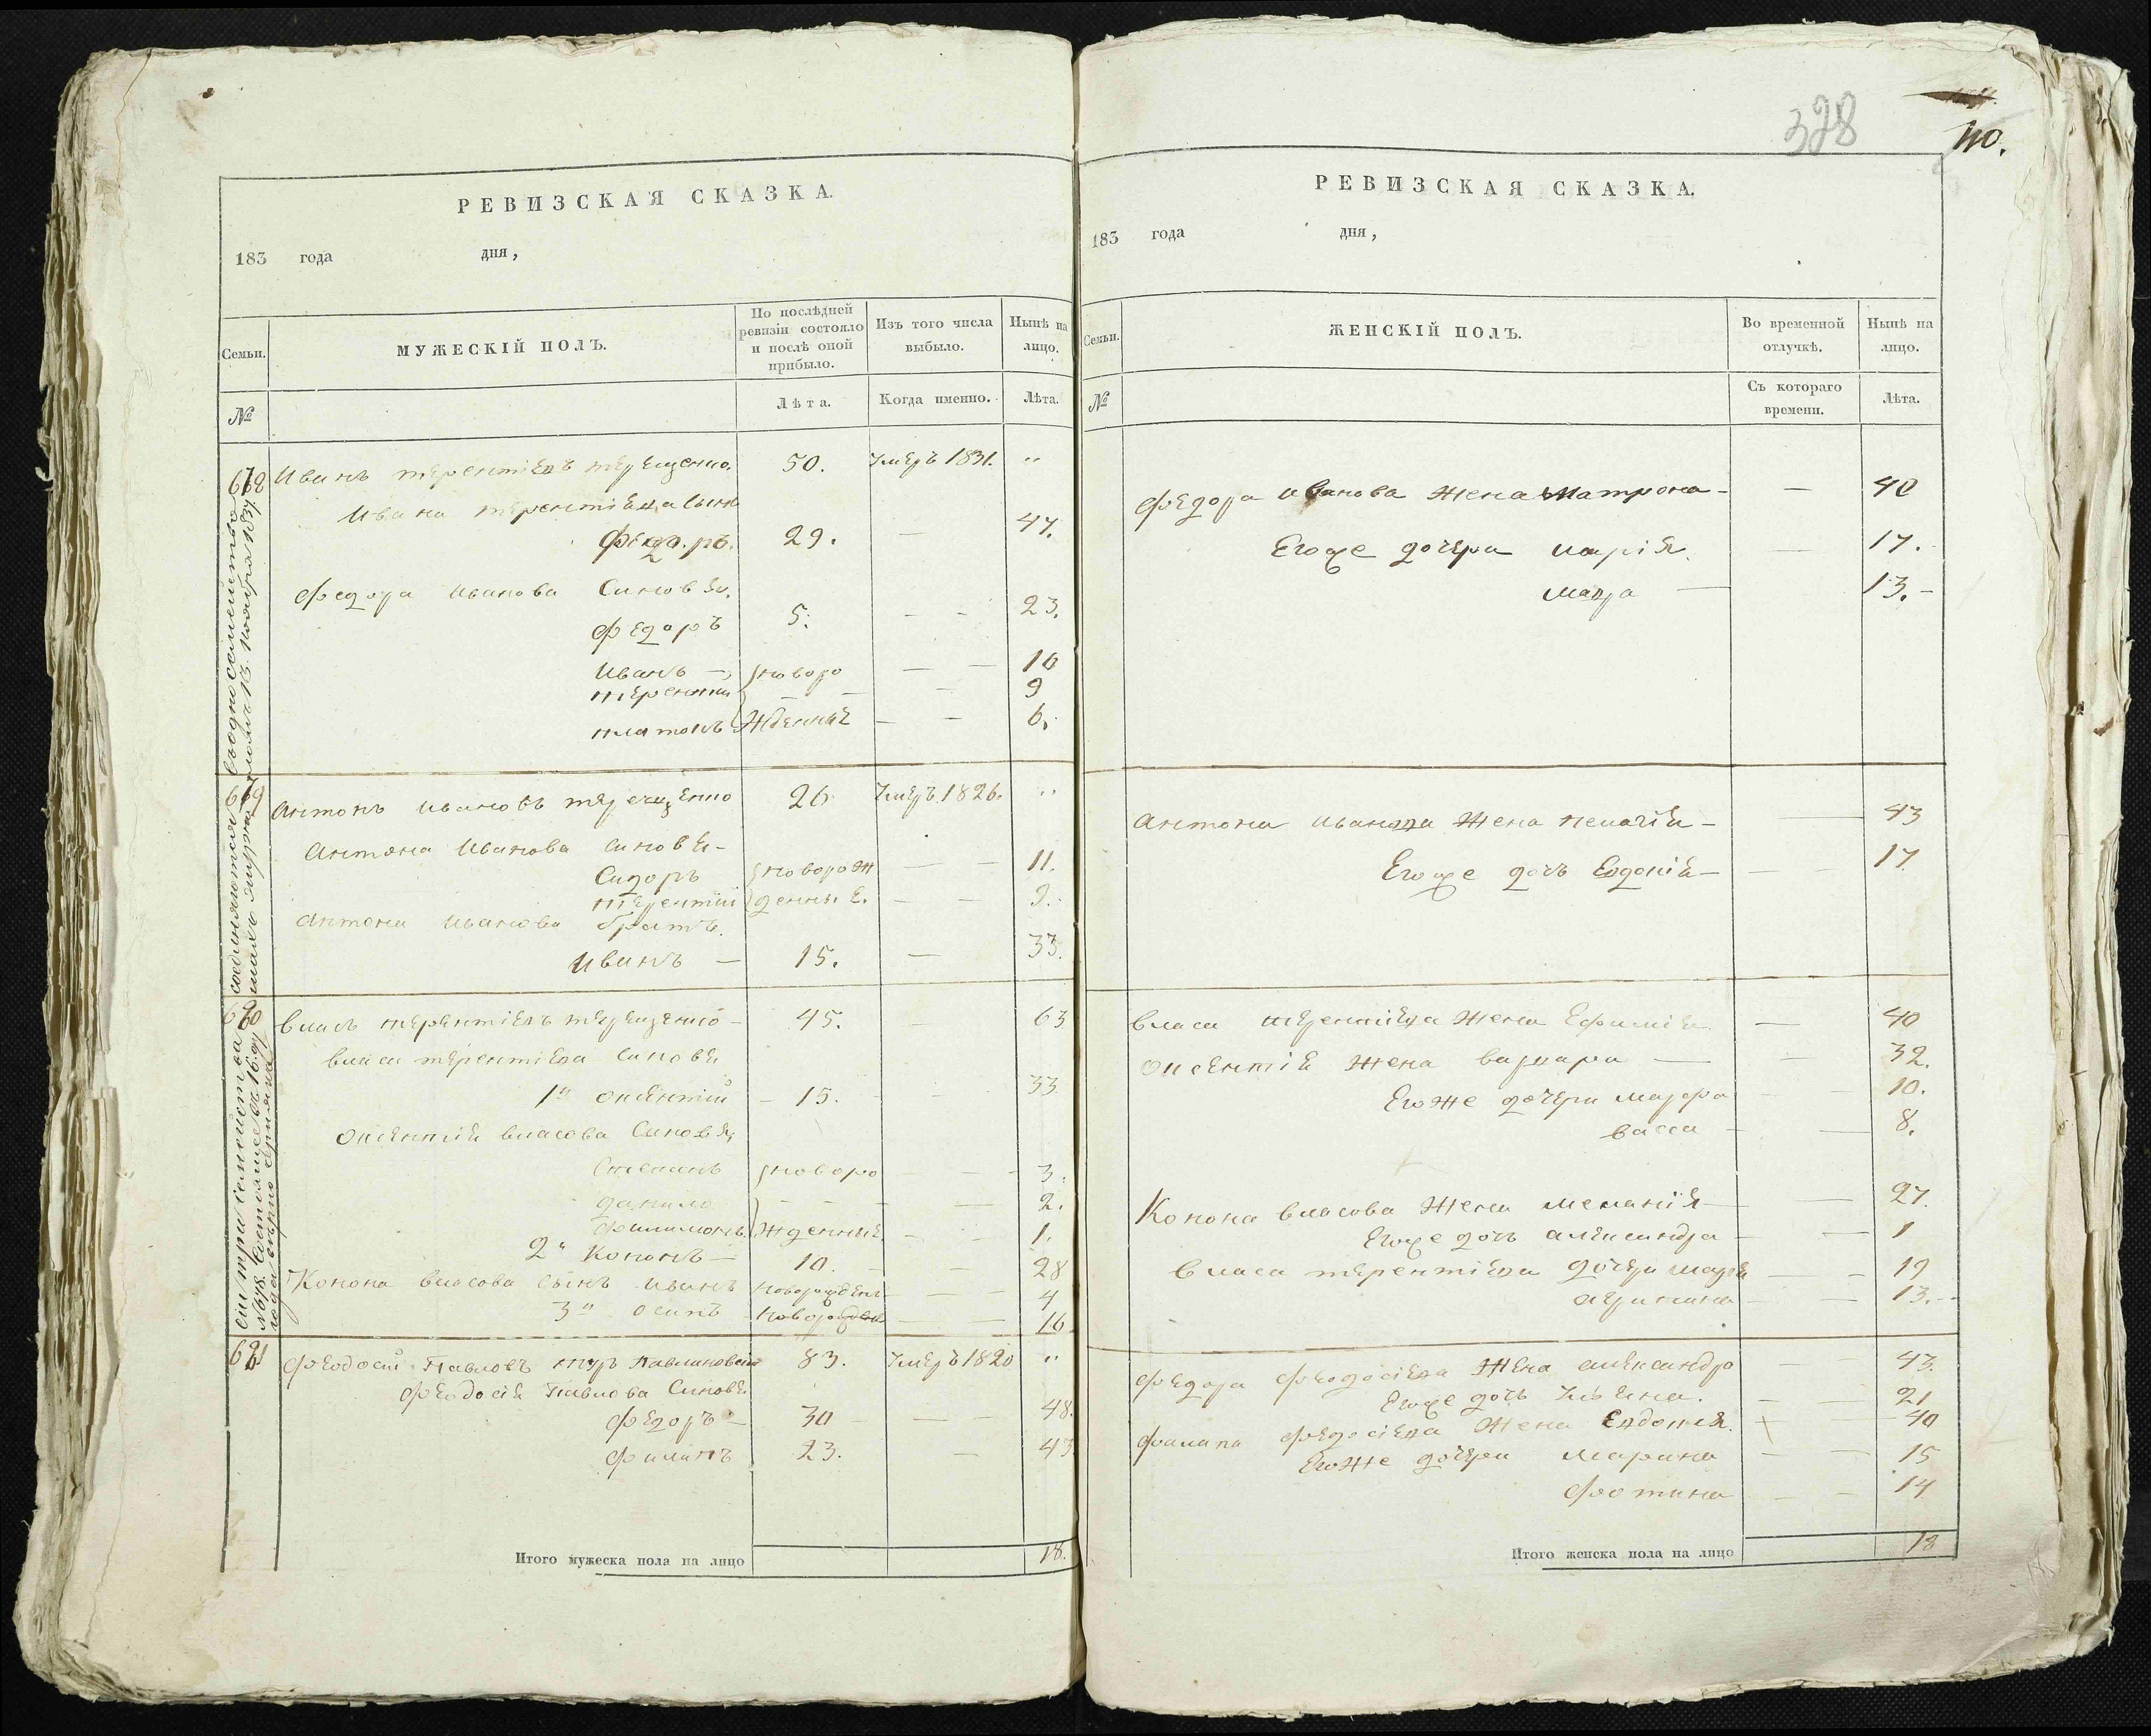 РЕВИЗСКАЯ СКАЗКА.
183 года дня,
Семьи.
МУЖЕСКІЙ ПОЛЪ.
По послѣдней ревизіи состояло и послѣ оной прибыло.
Изъ того числа выбыло.
Нынѣ на лицо.
№
Лѣта.
Когда именно.
Лѣта.
Иванъ терентіевъ терещенко. 50. Умеръ 1831. "
Ивана терентіева сынъ
Федоръ. 29. — 47.
Федора Иванова Синовя,
Федоръ 5. — - 23.
Иванъ — новоро — — 10
терентии — — - 9
платонъ жденные — — 6.
669 Антонъ Ивановъ терещенко 26 Умеръ 1826. "
Антона Иванова синовя -
Сидоръ новорож — — 11.
терентій денные. — — 9.
Антона Иванова братъ.
Иванъ — 15. — 33.
670 Власъ терентіевъ терещенко - 45. — 63
Власа терентіева синовя
1й Оксентій - 15. - 33
Оксентія власова Синовя,
Степанъ новоро — — 3.
данило — — — 2.
Филимонъ. жденные — — 1.
2й Кононъ — 10. — — 28
Конона власова сынъ Иванъ новорожден — — 4
3й осипъ новорожден — — 16
Феодосій Павловъ 83. Умеръ 1820 "
Феодосія Павлова Синовя
Федоръ — 30 — — 48.
Филипъ 23. — 43
Итого мужеска пола на лицо 18.
328
110.
РЕВИЗСКАЯ СКАЗКА.
183 года дня,
Семьи.
ЖЕНСКІЙ ПОЛЪ.
Во временной отлучкѣ.
Нынѣ на лицо.
№
Съ котораго времени.
Лѣта.
Федора Иванова жена Матрона - — 40
Егоже дочери марія. — 17.
мавра — 13. -
Антона Иванова жена пелагія - — 43
Егоже дочь Евдокія — — — 17.
Власа терентіева жена Ефимія — 40
Оксентія жена варвара — — 32.
Егоже дочери марфа — 10.
васса — 8.
Конона власова жена меланія — — 27.
Егоже дочь александра — — 1
Власа терентіева дочери марія — — 19
— — 13. -
Федора Феодосіева жена александра — 43.
Егоже дочь Ульяна. — — 21
Филипа Федосіева жена Евдокия. 40
Егоже дочери марина — — 15
Фотина — — 14
Итого женска пола на лицо 18